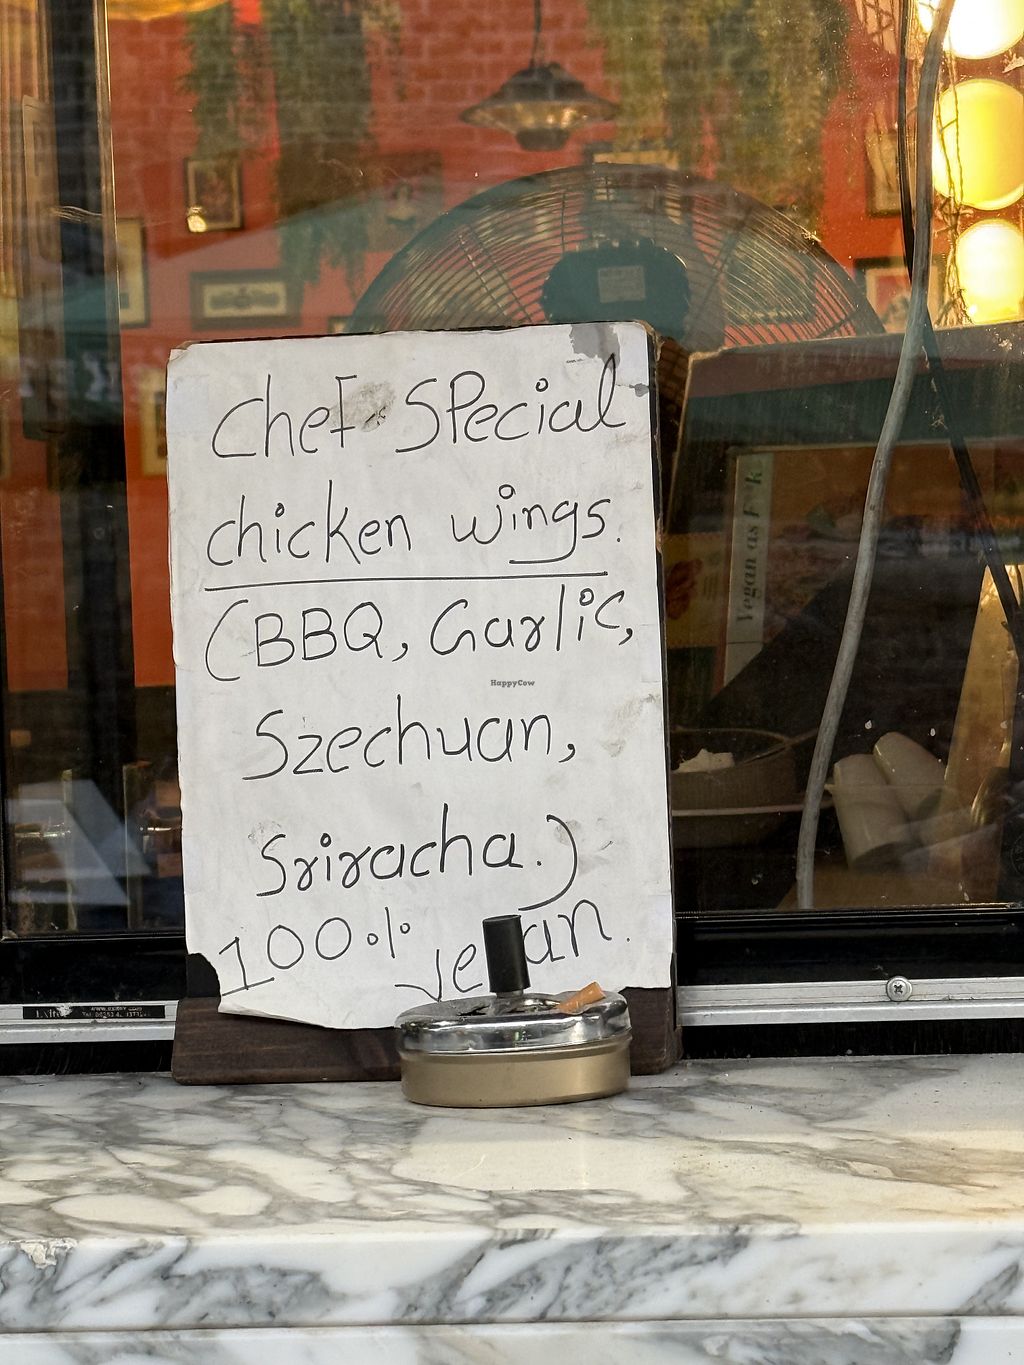 Chef Special
chicken wings.
(BBQ, Garlic,
Szechuan,
Sriracha.)
100%
HappyCow
Vegan as F**k